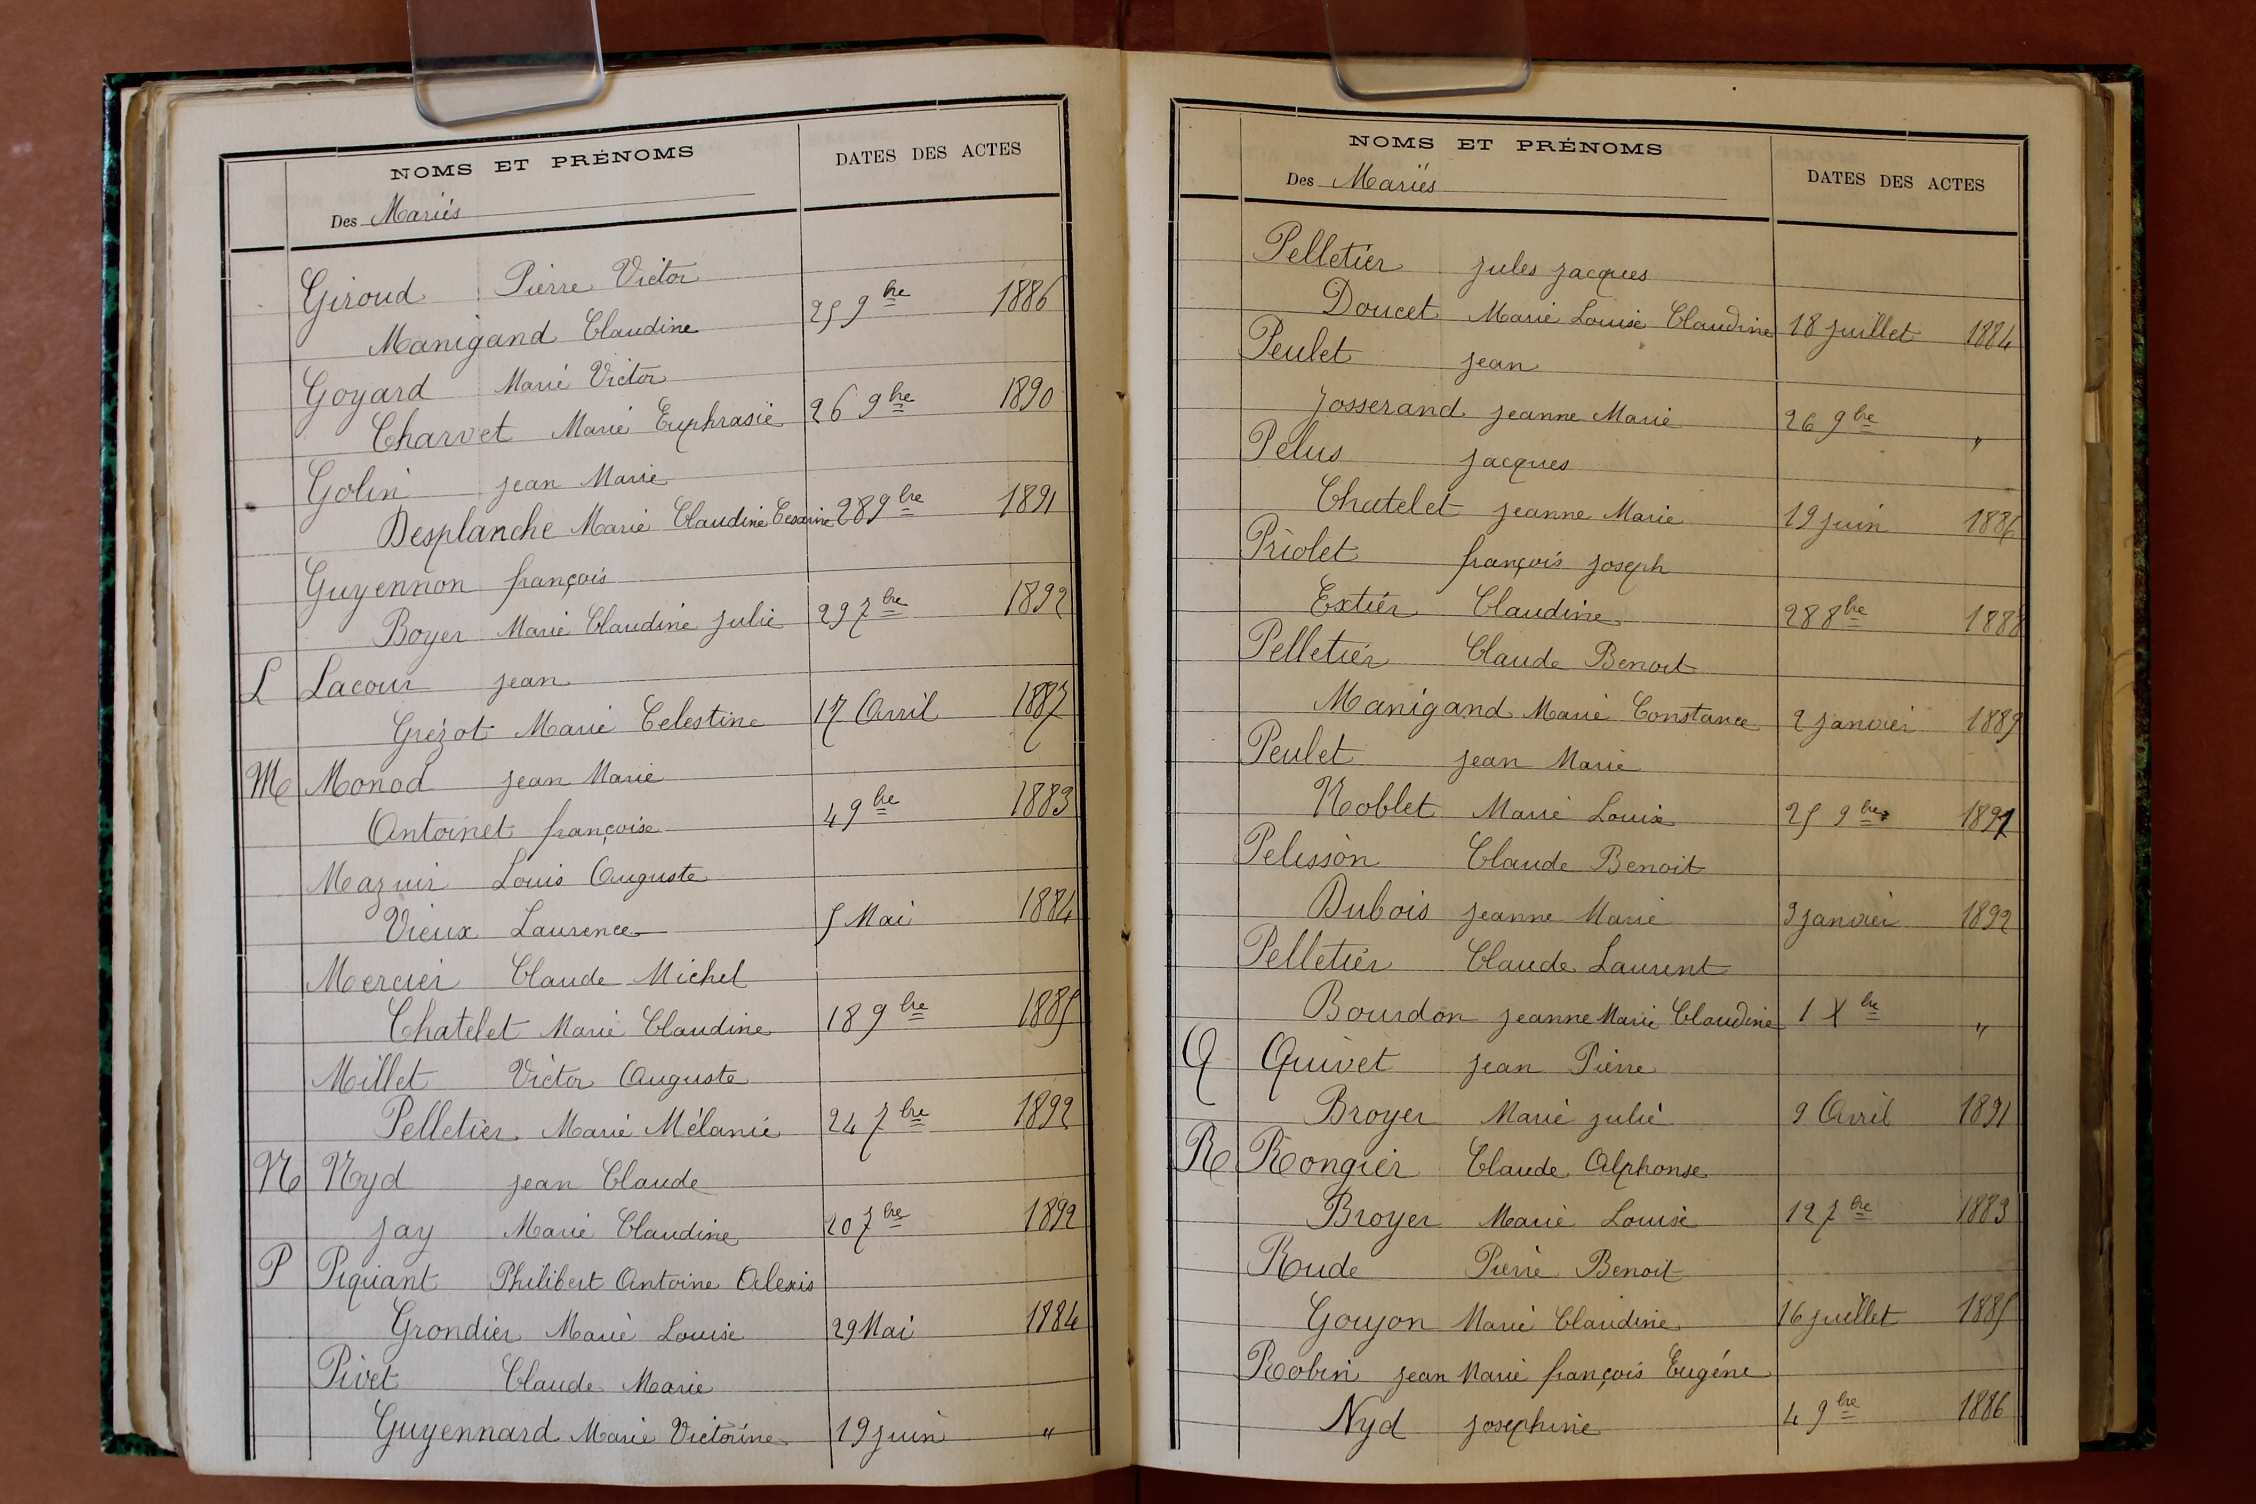 NOMS ET PRÉNOMS DATES DES ACTES
Des Mariés
Giroud Pierre Victor
Manigand Claudine 25 9bre 1886
Goyard Marie Victor
Charvet Marie Euphrasie 26 9bre 1890
Golin Jean Marie
Desplanche Marie Claudine Cesarine 28 9bre 1891
Guyennon françois
Boyer Marie Claudine Julie 29 7bre 1892
L Lacour Jean
Grézot Marie Celestine 17 Avril 1887
M Monod Jean Marie
Antoinet françoise 4 9bre 1883
Mazuir Louis Auguste
Vieux Laurence 5 Mai 1884
Mercier Claude Michel
Chatelet Marie Claudine 18 9bre 1885
Millet Victor Auguste
Pelletier Marie Mélanie 24 7bre 1892
N Nyd Jean Claude
Jay Marie Claudine 20 7bre 1892
P Piquant Philibert Antoine Alexis
Grondier Marie Louise 29 Mai 1884
Pivet Claude Marie
Guyennard Marie Victorine 19 juin "
NOMS ET PRÉNOMS DATES DES ACTES
Des Mariés
Pelletier Jules Jacques
Doucet Marie Louise Claudine 18 juillet 1884
Peulet Jean
Josserand Jeanne Marie 26 9bre "
Pelus Jacques
Chatelet Jeanne Marie 19 juin 1886
Priolet françois Joseph
Extier Claudine 28 8bre 1888
Pelletier Claude Benoit
Manigand Marie Constance 2 janvier 1889
Peulet Jean Marie
Noblet Marie Louise 25 9bre 1891
Pelisson Claude Benoit
Dubois Jeanne Marie 9 janvier 1892
Pelletier Claude Laurent
Bourdon Jeanne Marie Claudine 1 Xbre "
Q Quivet Jean Pierre
Broyer Marie Julie 9 Avril 1891
R Rongier Claude Alphonse
Broyer Marie Louise 12 7bre 1883
Rude Pierre Benoit
Goujon Marie Claudine 16 juillet 1885
Robin Jean Marie françois Eugéne
Nyd Josephine 4 9bre 1886